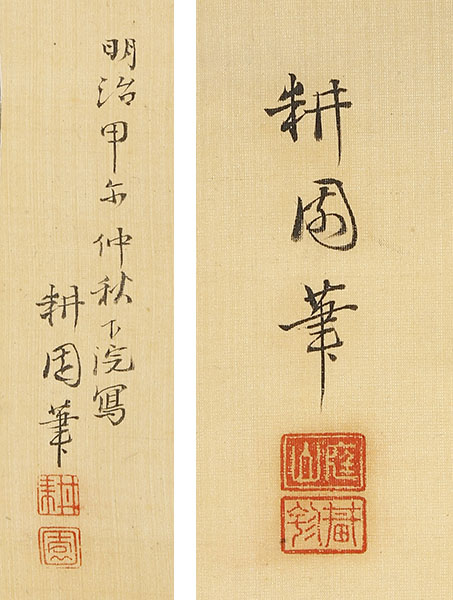 明治甲午仲秋下浣寫
耕園筆
耕
園
耕園筆